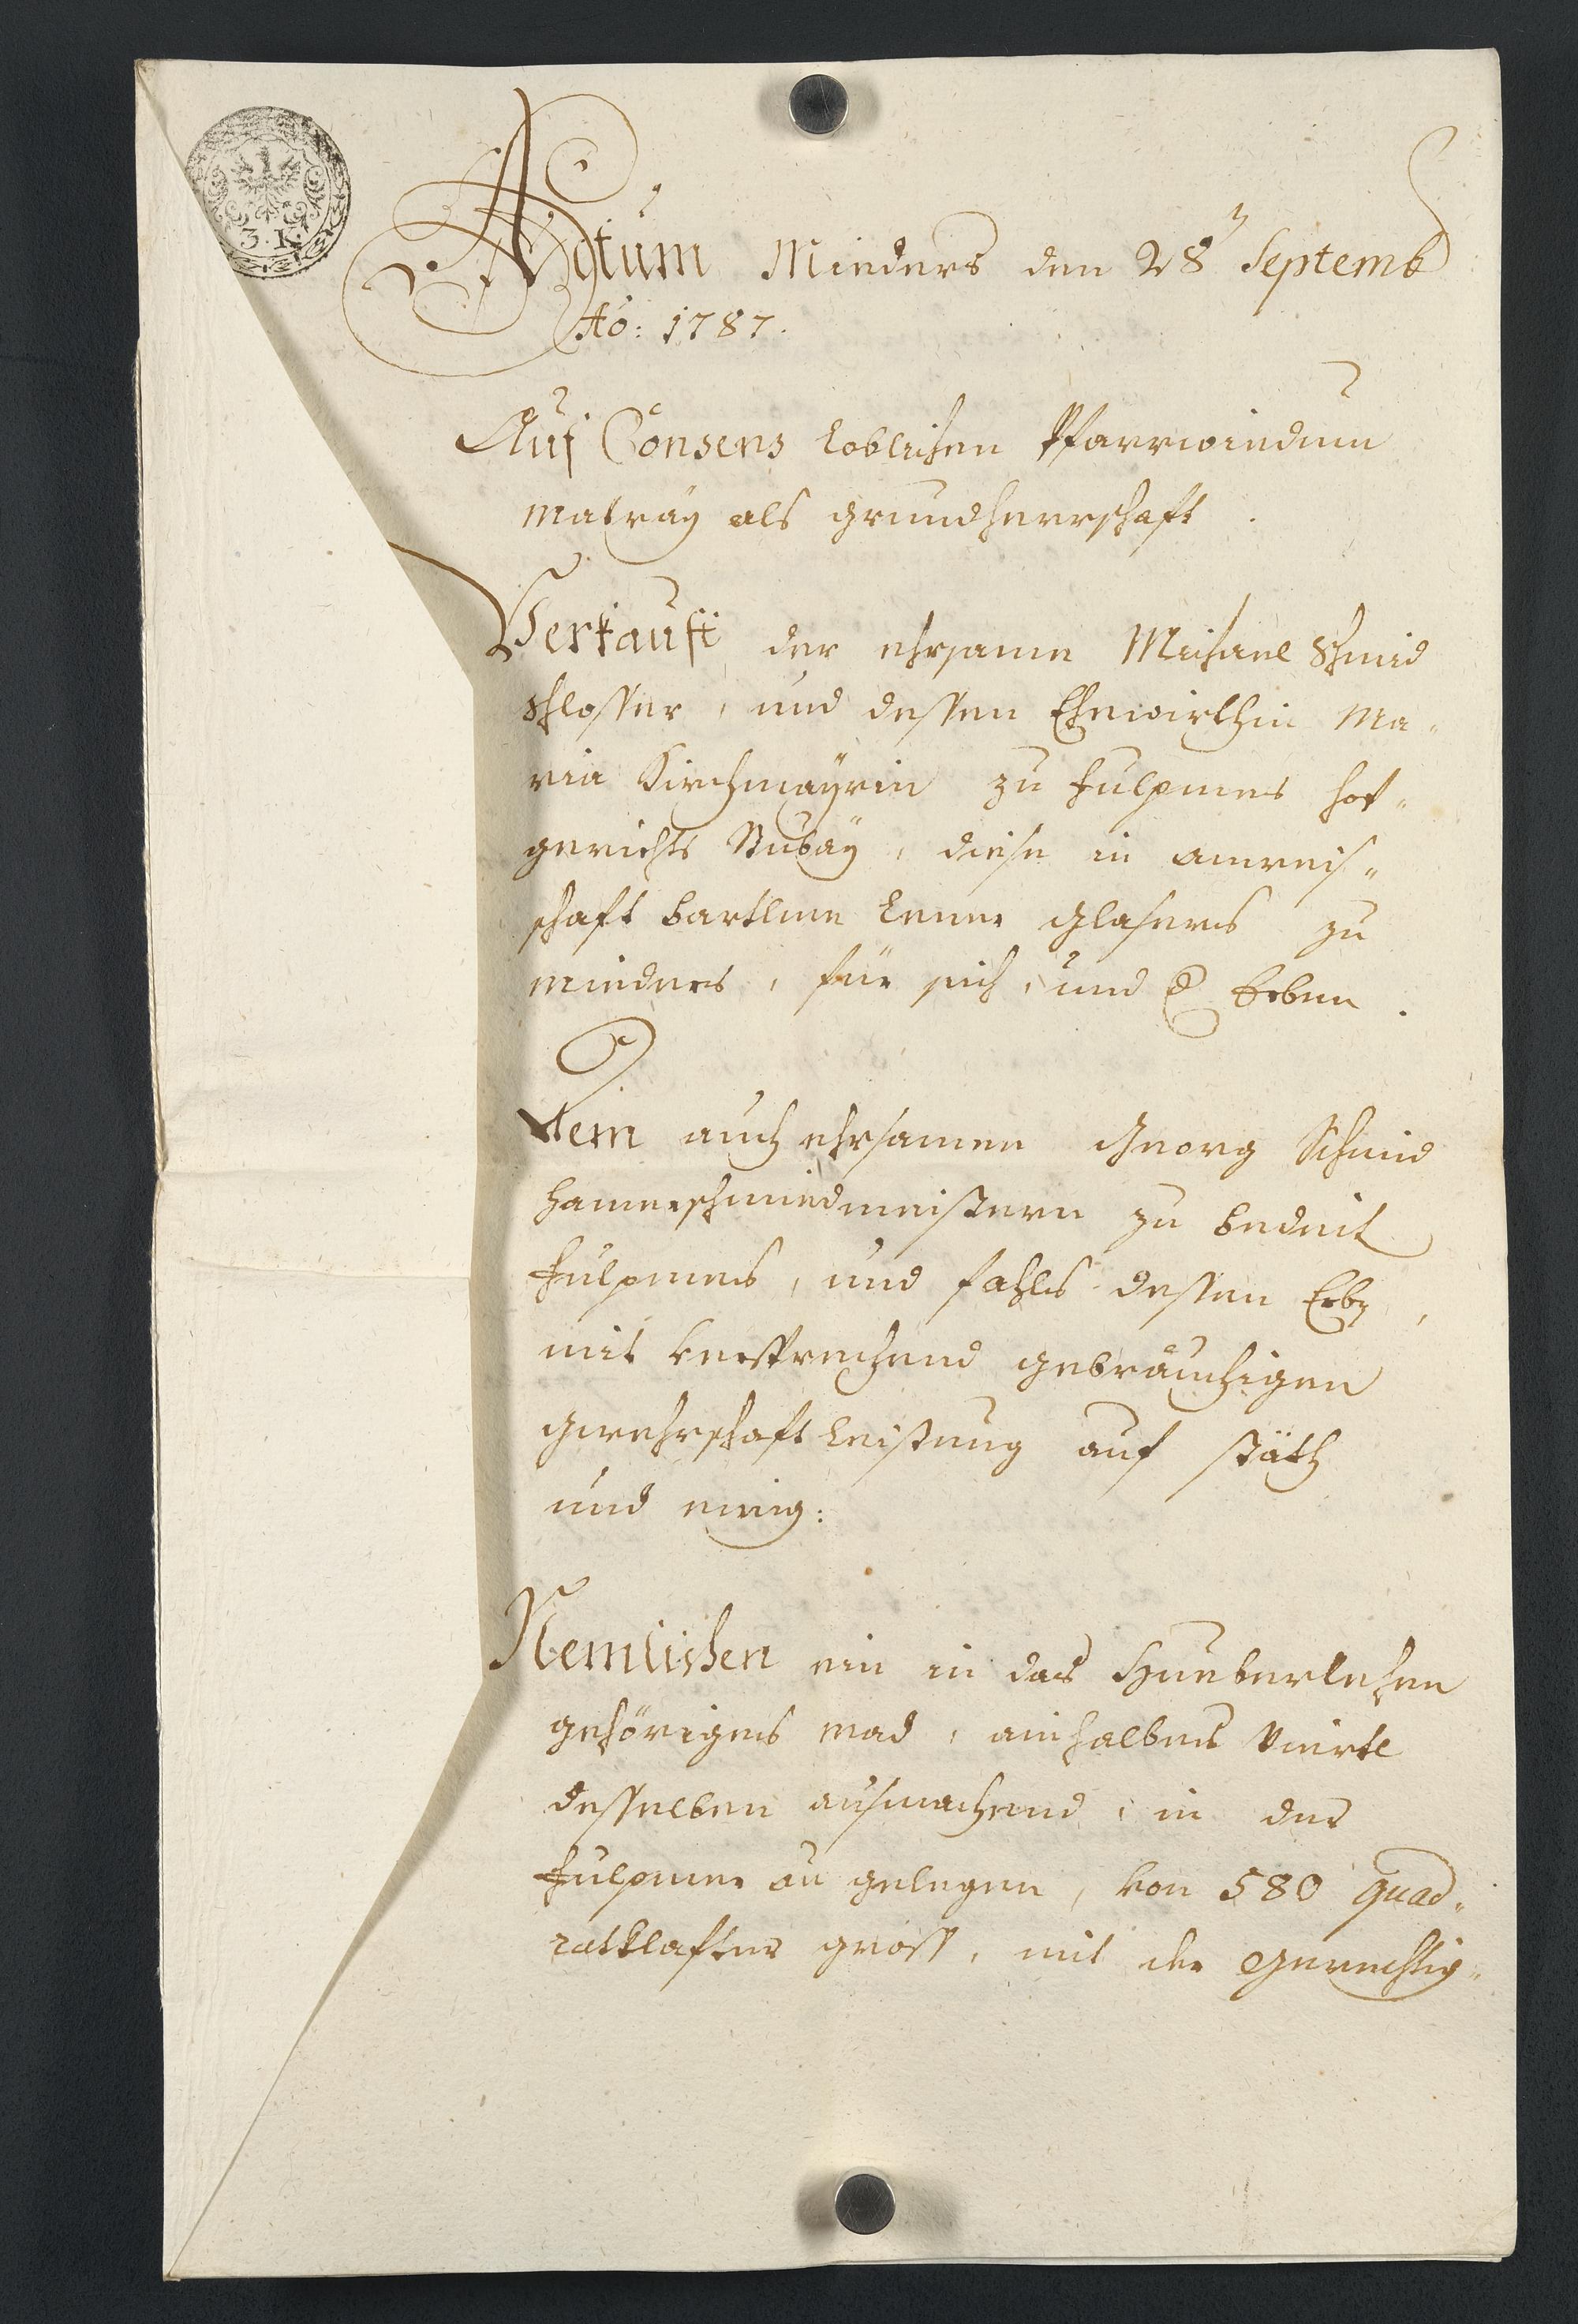 3. K.
Actum Mieders den 28ⁿ Septemb
Aō: 1787.
Auf Consens loblichen Pfarrwiedum
Matray als Grundherrschaft.
Verkauft der ehrsame Michael Schmid
Schlosser, und dessen Ehewirthin Ma¬
ria Kirchmayrin zu Fulpmes Hof¬
gerichts Stubay, diese in anweis¬
schaft Bartlme Lener Glasers zu
Mieders, für sich, und Erben.
Dem auch ehrsamen Georg Schmid
Hamerschmiedmeistern zu bedeit
Fulpmes, und fahls dessen Erb,
mit versprechend gebräuchigen
Gwehrschaftleistung auf stäth
und ewig:
Nemlichen ein in das Hueberlehen
gehöriges Mad, ain halbes Viertl
desselben ausmachend, in der
Fulpmer au gelegen, von 580 Quad¬
ratklafter gross, mit der Gerechtig¬